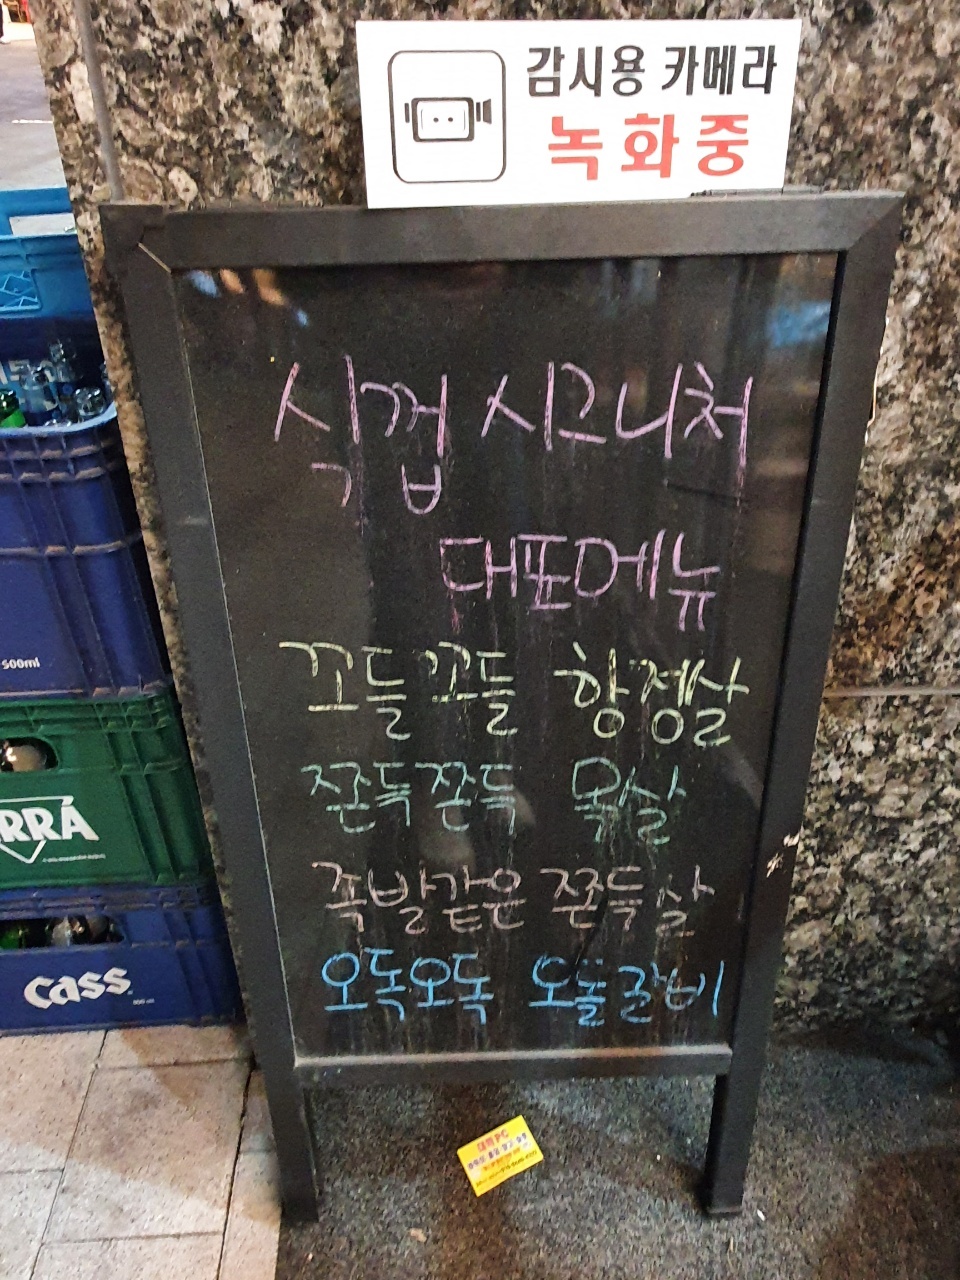 감시용 카메라
녹화중
식껍 시그니처
대표메뉴
꼬들꼬들 항정살
쫀득쫀득 목살
족발같은 쫀득살
오독오독 오돌갈비
500ml
RRA
Cass
대학PC